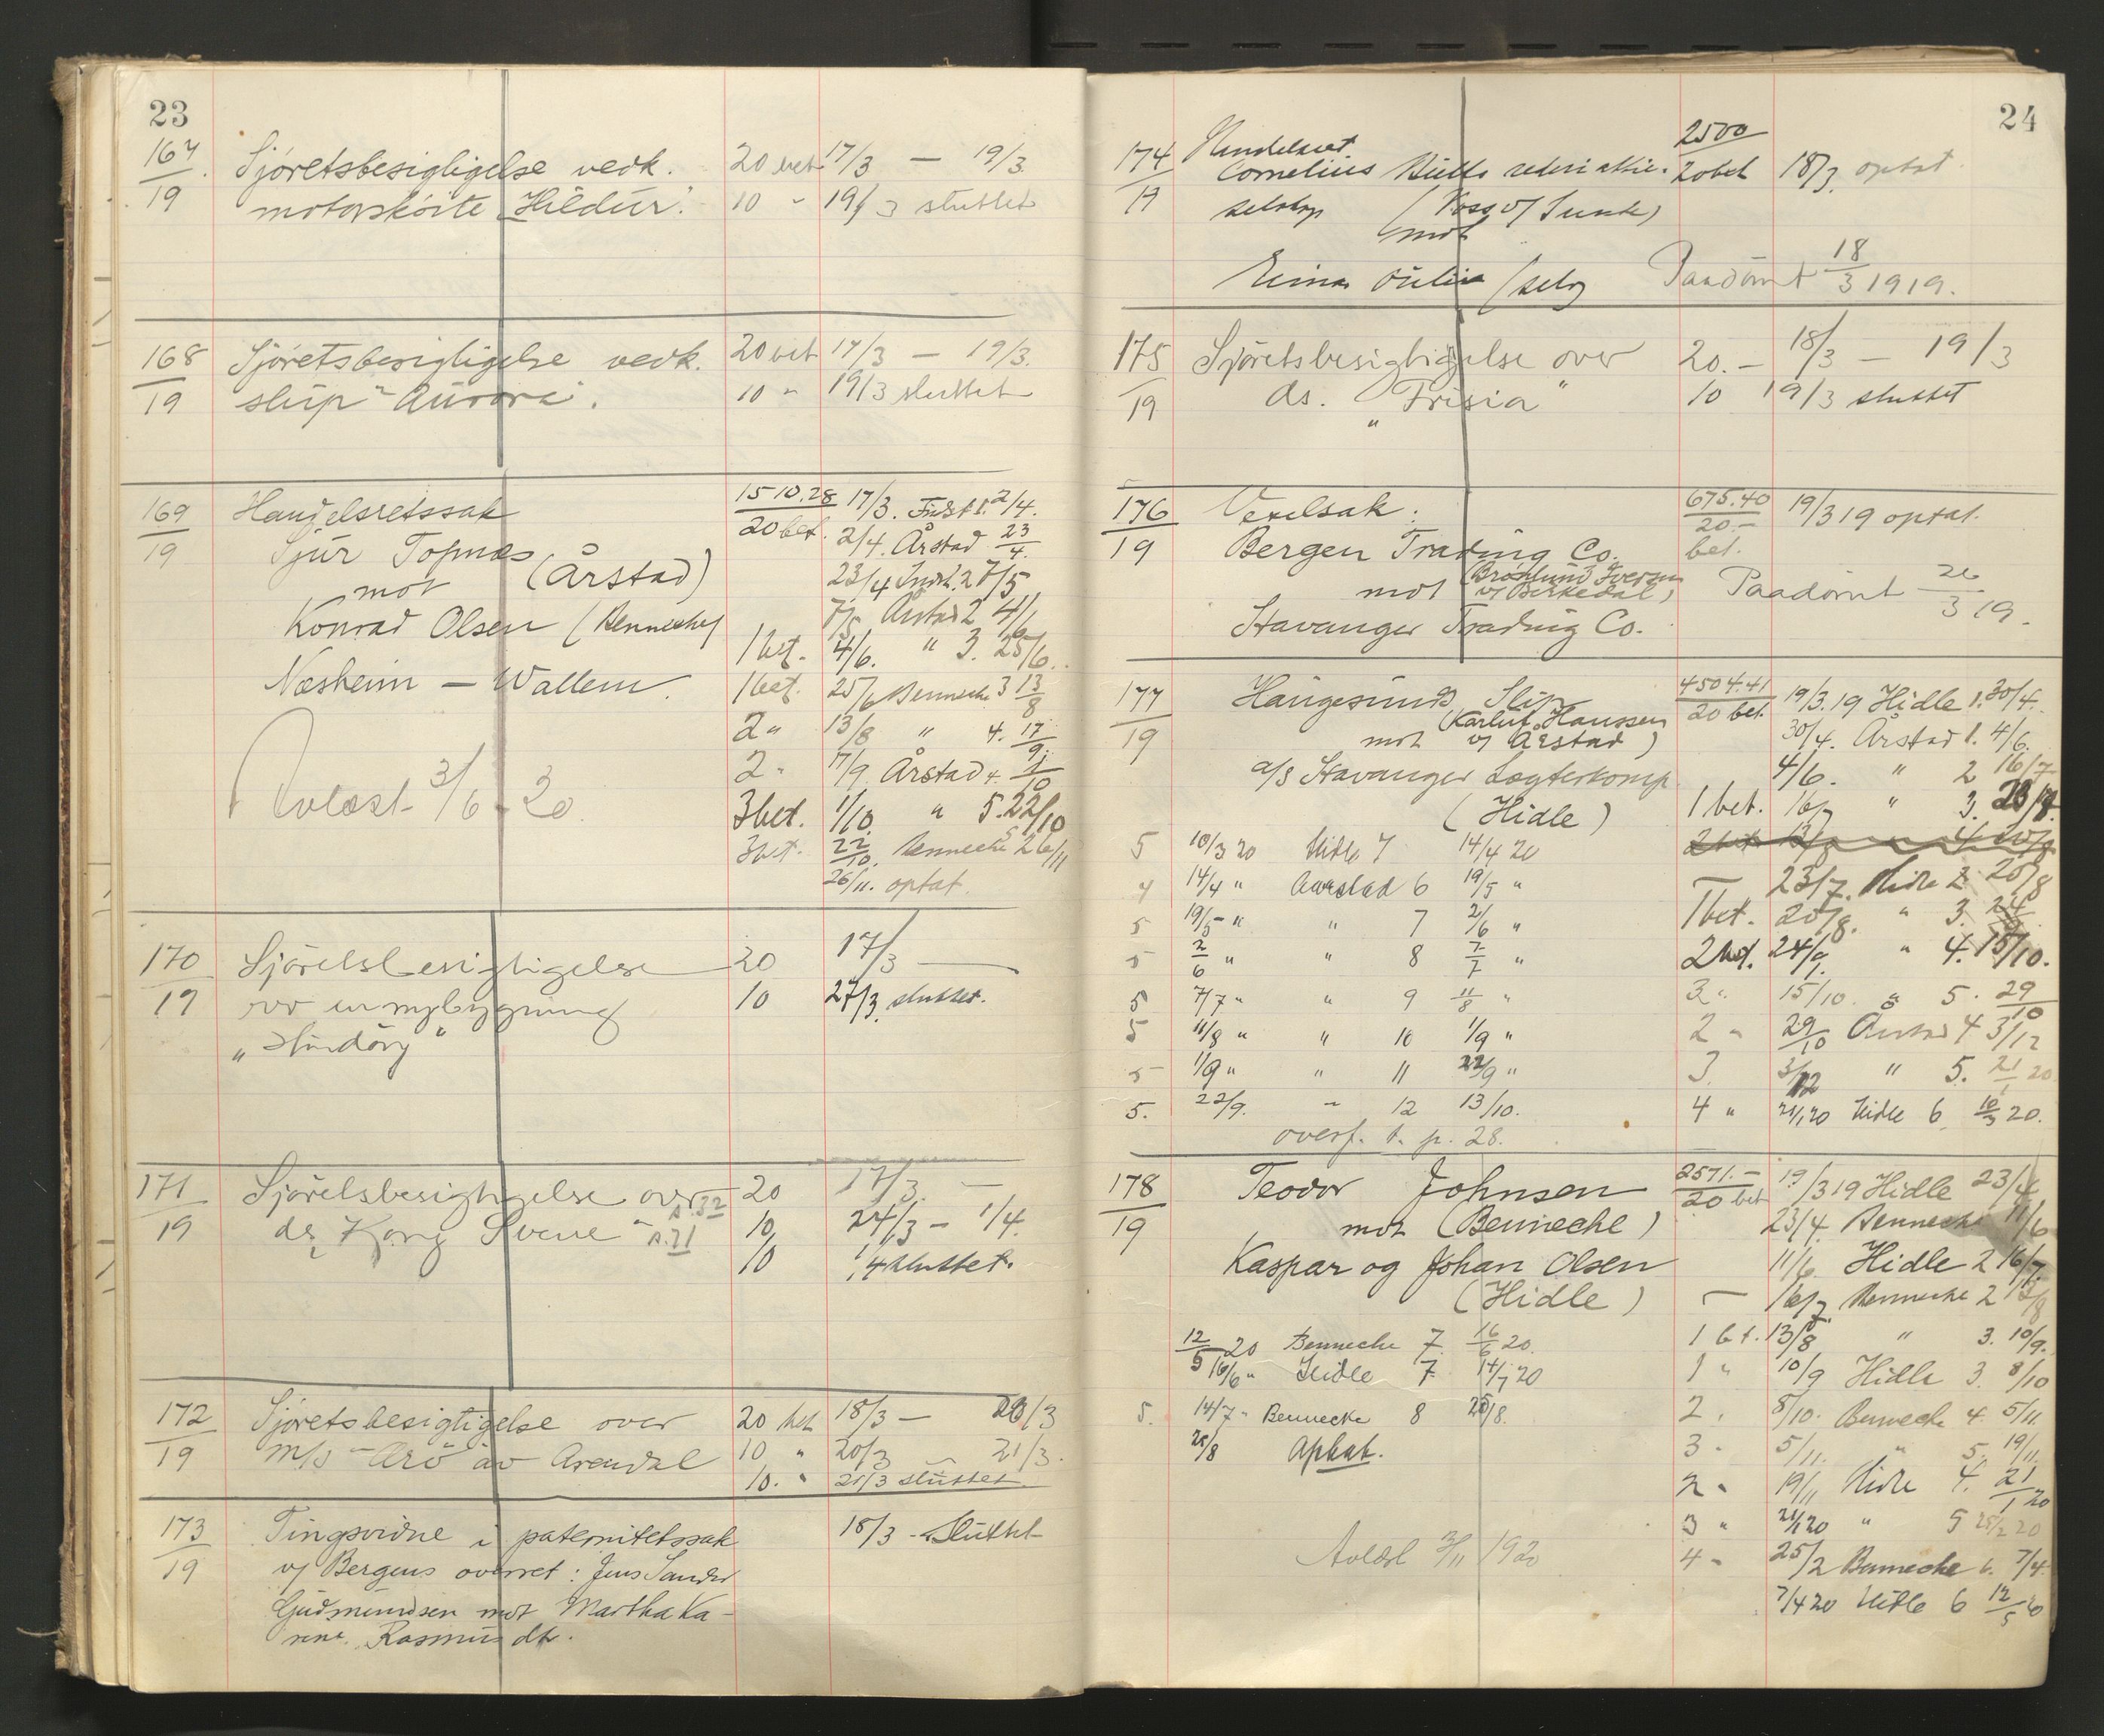 23
167/19 Sjöretsbesigtigelse vedk. 20 bet. 17/3 — 19/3
motorskőite "Hildur". 10 " 19/3 sluttet
168/19 Sjöretsbesigtigelse vedk. 20 bet 17/3 — 19/3.
slup "Aurora". 10 " 19/3 sluttet
169/19 Handelsretssak 1510.28 17/3. Indst 1. 2/4.
Sjur Topnes 20 bet. 2/4. Årstad 23/4.
mot (Årstad) 23/4 Indst. 2 7/5
Konrad Olsen (Bennecke) 7/5 Årstad 2 4/6
1 bet. 4/6. " 3. 25/6.
Næsheim — Wallem. 1 bet. 25/6 Bennecke 3 13/8
2 " 13/8 " 4. 17/9.
2 " 17/9 Årstad 4. 1/10
Avlæst 3/6 - 20 3 bet. 1/10. " 5. 22/10
3 bet. 22/10. Bennecke 5 26/11
26/11. optat.
170/19 Sjöretsbesigtigelse 20 17/3 —
over en nybygning 10 27/3. sluttet.
171/19 Sjöretsbesigtigelse over 20 17/3. —
s. 32
ds "Kong Sverre" s. 71 10 24/3 — 1/4.
10 1/4 sluttet.
172/19 Sjöretsbesigtigelse over 20 bet 18/3 — 20/3
m/s "Ärö" av Arendal 10 " 20/3 — 21/3.
10. " 21/3 sluttet
173/19 Tingsvidne i paternitetssak 18/3 - Sluttet
v/ Bergens overret: Jens Sander
Gudmundsen mot Martha Ka-
rine Rasmusdtr.
24
174/19 Handelsret 2500
Cornelius Bulls rederi aktie- 20 bet 18/3. optat
selskap (Voss v/ Sunde)
mot
Einar (selv) Paadömt 18/3 1919.
175/19 Sjöretsbesigtigelse over 20.— 18/3 — 19/3
ds. "Frisia" 10 19/3 sluttet
176/19 Vexelsak: 675.40 19/3 19 optat.
Bergen Trading Co. 20.— bet.
mot (Brönlund Iversen v/ Birkedal) Paadömt 26/3 19.
Stavanger Trading Co.
177/19 Haugesunds Slip 4504.41 19/3.19 Hidle 1. 30/4.
(Karluf Hanssen 20 bet.
mot v/ Årstad) 30/4. Årstad 1. 4/6.
a/s Stavanger Lægterkomp. 4/6. " 2 16/7
(Hidle) 1 bet. 16/7 " 3. 23/7.
5 10/3 20 Hidle 7 14/4 20
4 14/4 " Aarstad 6 19/5 " — 23/7. Hidle 2 20/8
5 19/5 - " " 7 2/6 " 1 bet. 20/8. " 3. 24/9
5 2/6 " " 8 7/7 " 2 bet. 24/9. " 4. 15/10.
5 7/7 " " 9 11/8 " 3 " 15/10. " 5. 29/10
5 11/8 " " 10 1/9 " 2 " 29/10 Årstad 4 3/12
5 1/9 " " 11 22/9 " 3. 3/12 " 5. 21/1 20
5. 22/9. " 12 13/10. 4 " 21/1 20 Hidle 6. 10/3 20.
overf. t. p. 28.
178/19 Teodor Johnsen 2571.— 19/3 19 Hidle 23/4
mot (Bennecke) 20 bet 23/4. Bennecke 11/6
Kaspar og Johan Olsen 11/6 Hidle 2 16/7.
(Hidle) — 16/7 Bennecke 2 13/8
12/5 20 Bennecke 7 16/6 20. 1 bt. 13/8 " 3. 10/9.
5 16/6 " Hidle 7 14/7 20 1 " 10/9 Hidle 3. 8/10
5. 14/7 - Bennecke 8 25/8. 2. 8/10. Bennecke 4. 5/11
25/8 Optat. 3 - 5/11. " 5. 19/11.
2 - 19/11 Hidle 4. 21/1 20
3 " 21/1 20 " 5 25/2 20
Avlæst 3/11 1920 4 - 25/2 Bennecke 6. 7/4.
7/4 20 Hidle 6 12/5 20